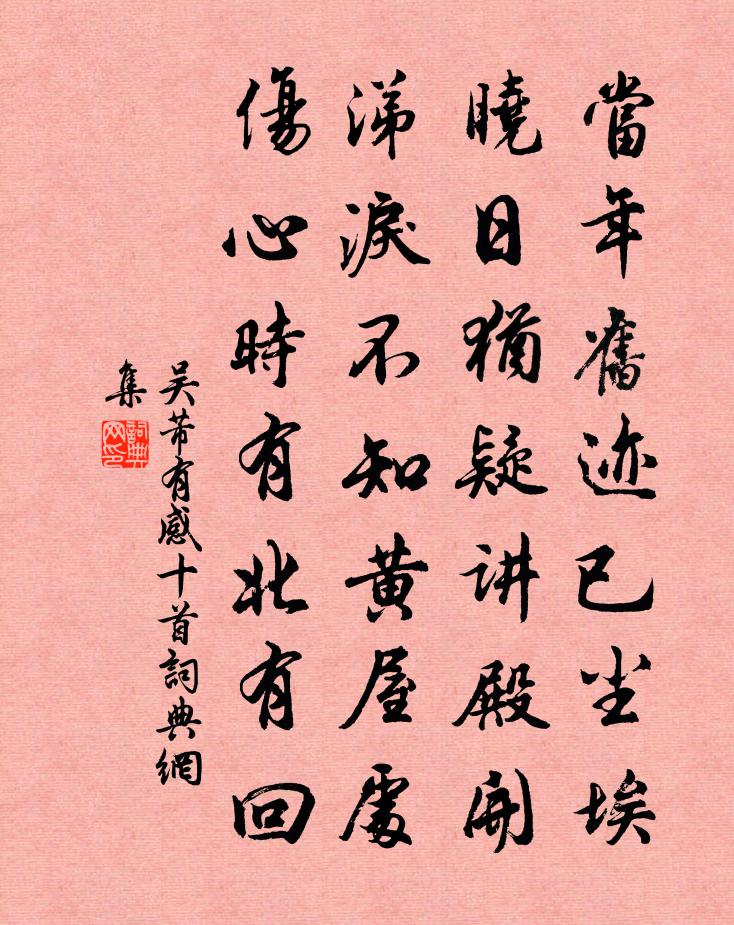 當年舊迹已尘埃
曉日猶疑讲殿開
涕淚不知黄屋處
傷心時有北有回
吴芾有感十首詞典網
集
詞典
网印